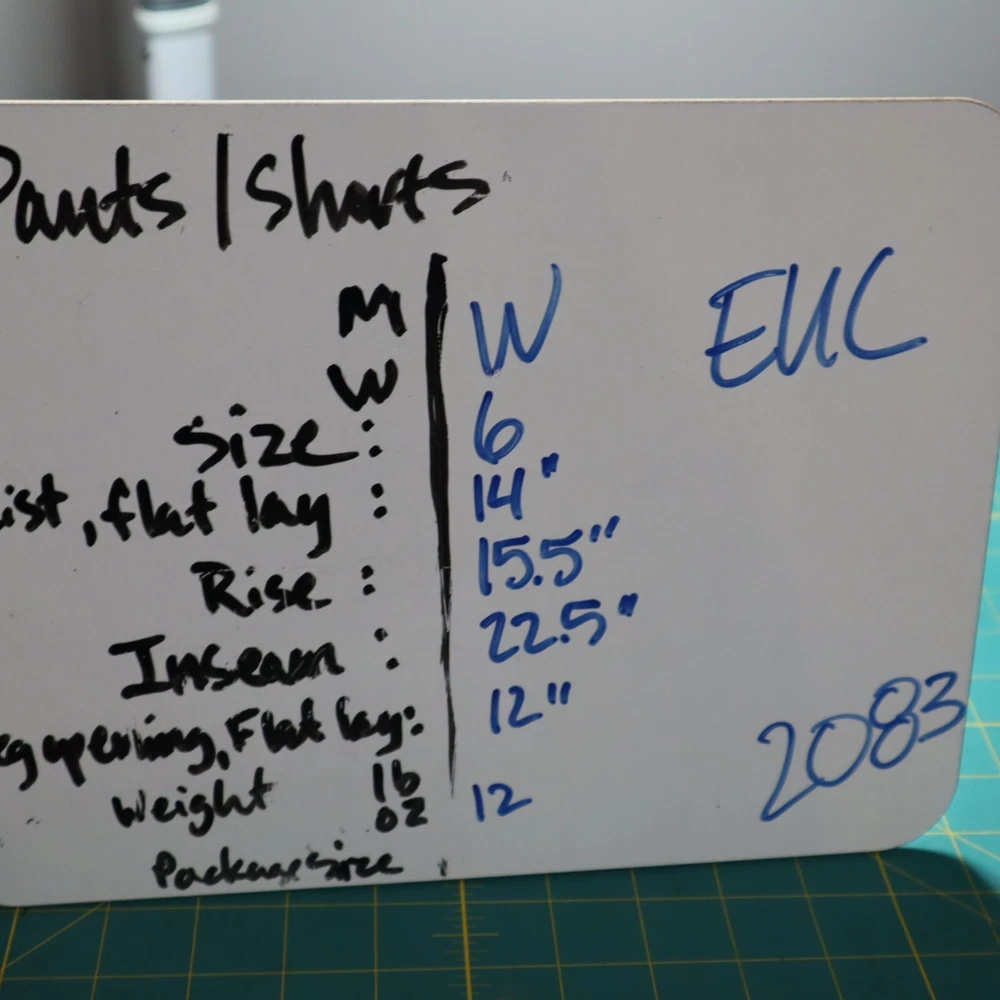 Pants / Shorts
M W EUC
W
Size : 6
ist, flat lay : 14"
Rise : 15.5"
Inseam : 22.5"
eg opening, Flat lay: 12"
Weight lb
oz 12
Package Size
2083